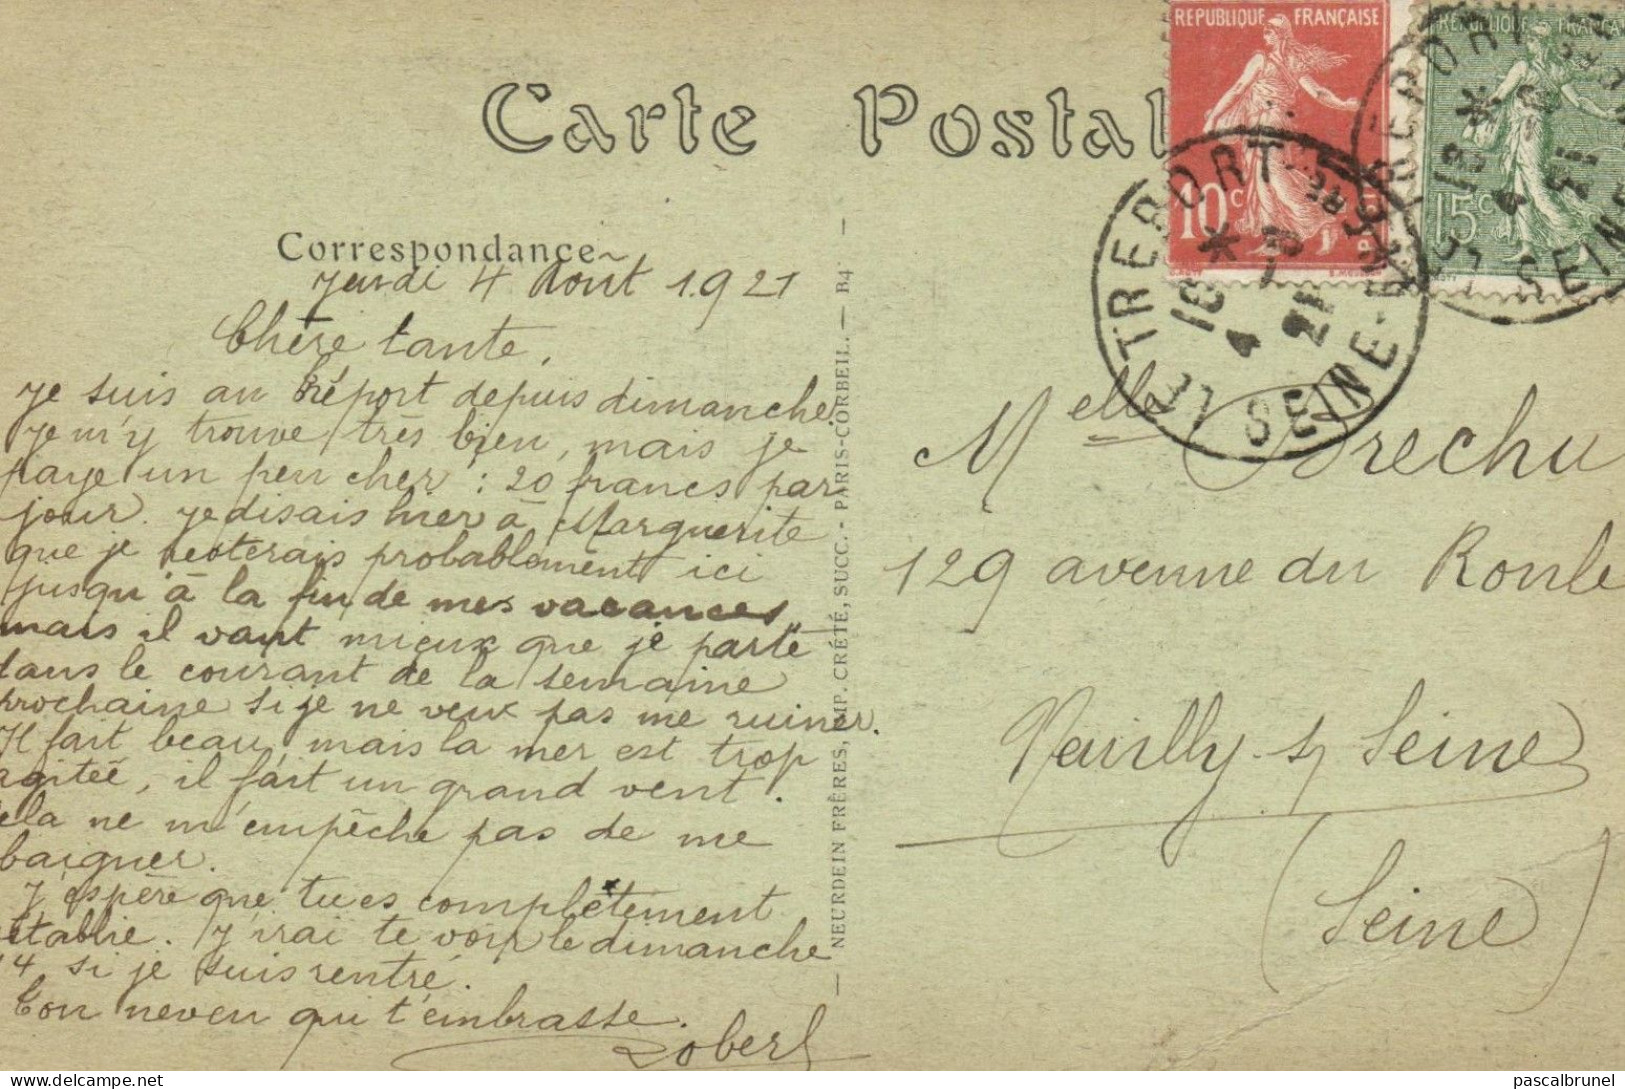 Carte Postal
RÉPUBLIQUE FRANÇAISE
10c
RÉPUBLIQUE FRANÇAI
15c
LE TREPORT
18 *
4 - 8
21
SEINE-INFRE
LE TREPORT
18 *
4
SEINE
Correspondance
Jeudi 4 Août 1921
Chère tante,
Je suis au Tréport depuis dimanche.
Je m'y trouve très bien, mais je
paye un peu cher : 20 francs par
jour. Je disais hier à Marguerite
que je resterais probablement ici
jusqu'à la fin de mes vacances,
mais il vaut mieux que je parte
dans le courant de la semaine
prochaine si je ne veux pas me ruiner.
Il fait beau, mais la mer est trop
agitée, il fait un grand vent.
Cela ne m'empêche pas de me
baigner.
J'espère que tu es complètement
établie. J'irai te voir le dimanche
14 si je suis rentré.
Ton neveu qui t'embrasse.
Robert
NEURDEIN FRÈRES, IMP. CRÉTÉ, SUCC. - PARIS-CORBEIL. — B4 —
Melle Brechu
129 avenue du Roule
Neuilly s/ Seine
(Seine)
www.delcampe.net
pascalbrunel